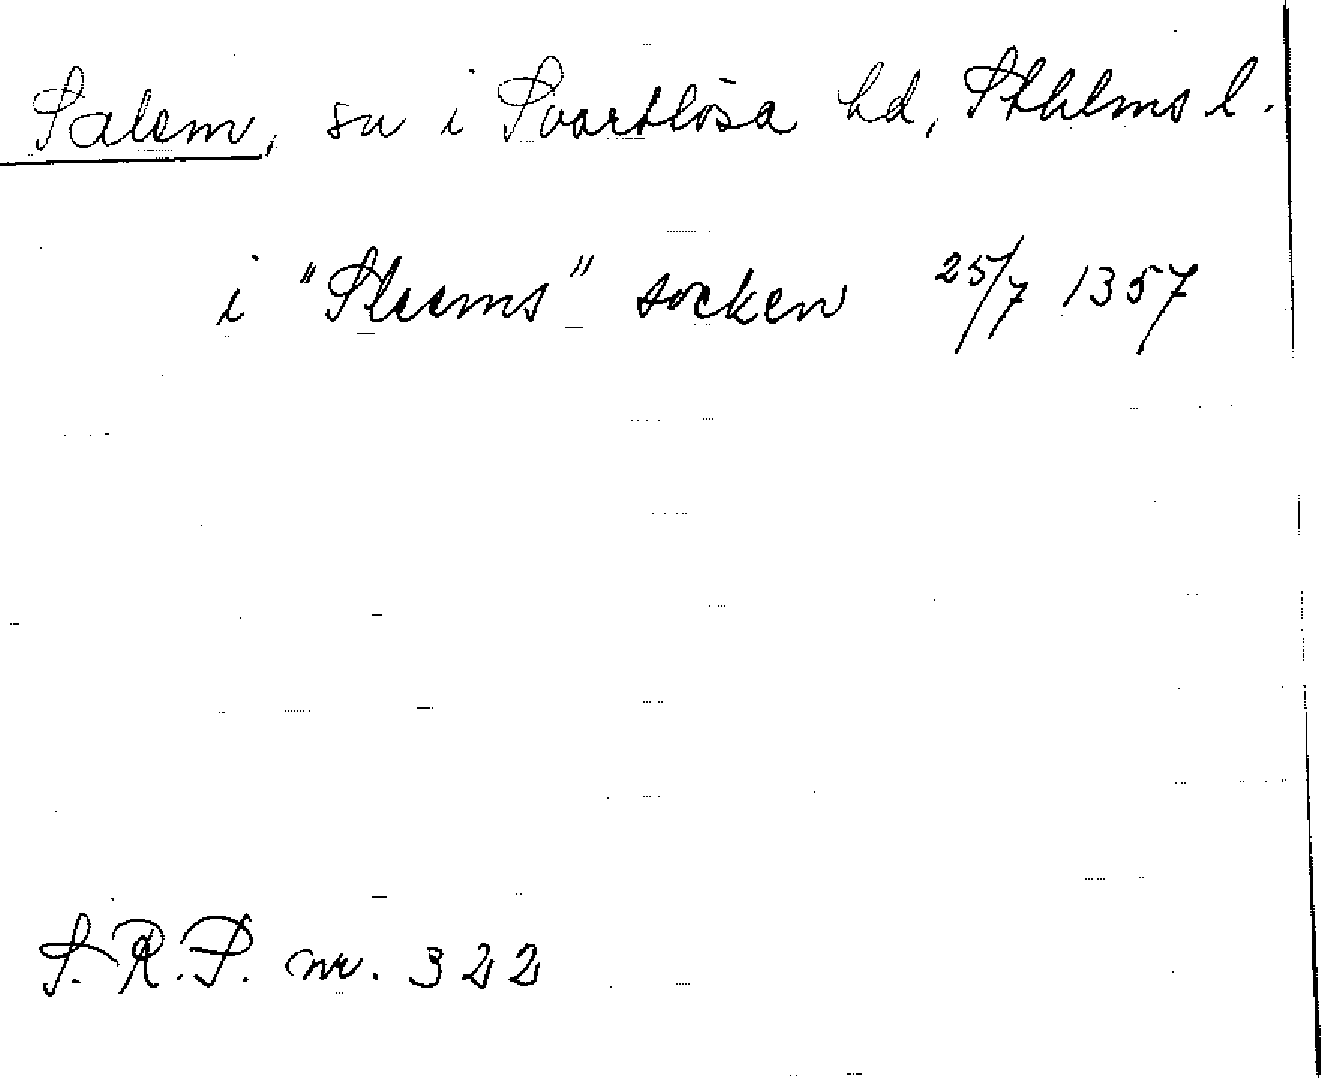 Salem, sn i Svartlösa hd, Sthlms l.
i "Sleems" socken 25/7 1357
S.R.P. nr. 322